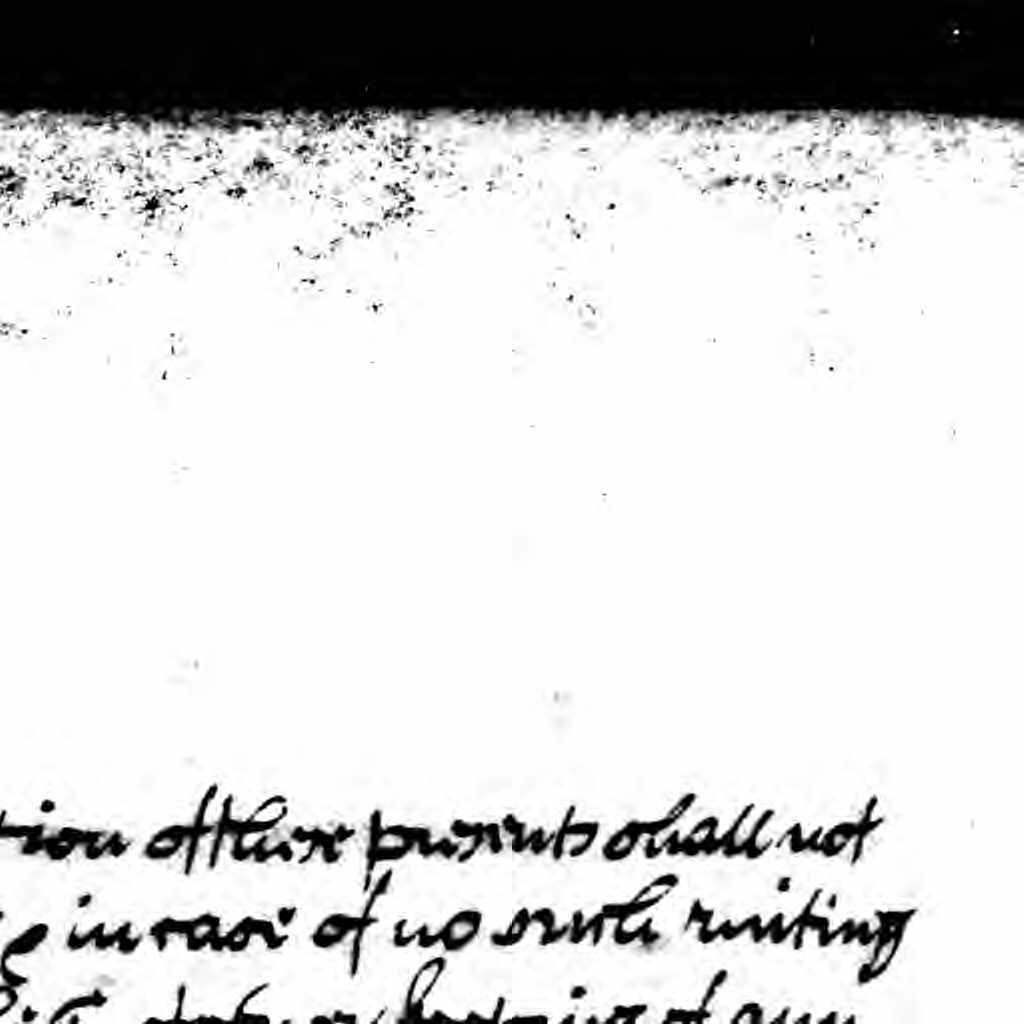 tion of these presents shall not
in case of no such writing
of any